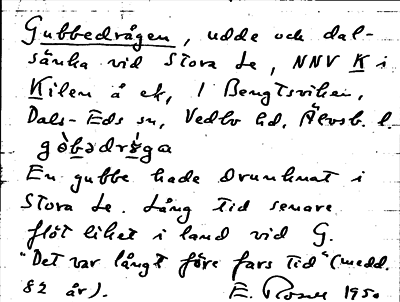 Gubbedrågen, udde och dal-
sänka vid Stora Le, NNV K i
Kilen å ek, i Bengtsviken,
Dals-Eds sn, Vedbo hd, Älvsb. l.
gòbədrǻga
En gubbe hade drunknat i
Stora Le. Lång tid senare
flöt liket i land vid G.
"Det var långt före fars tid" (medd.
82 år). E. Rosell 1950